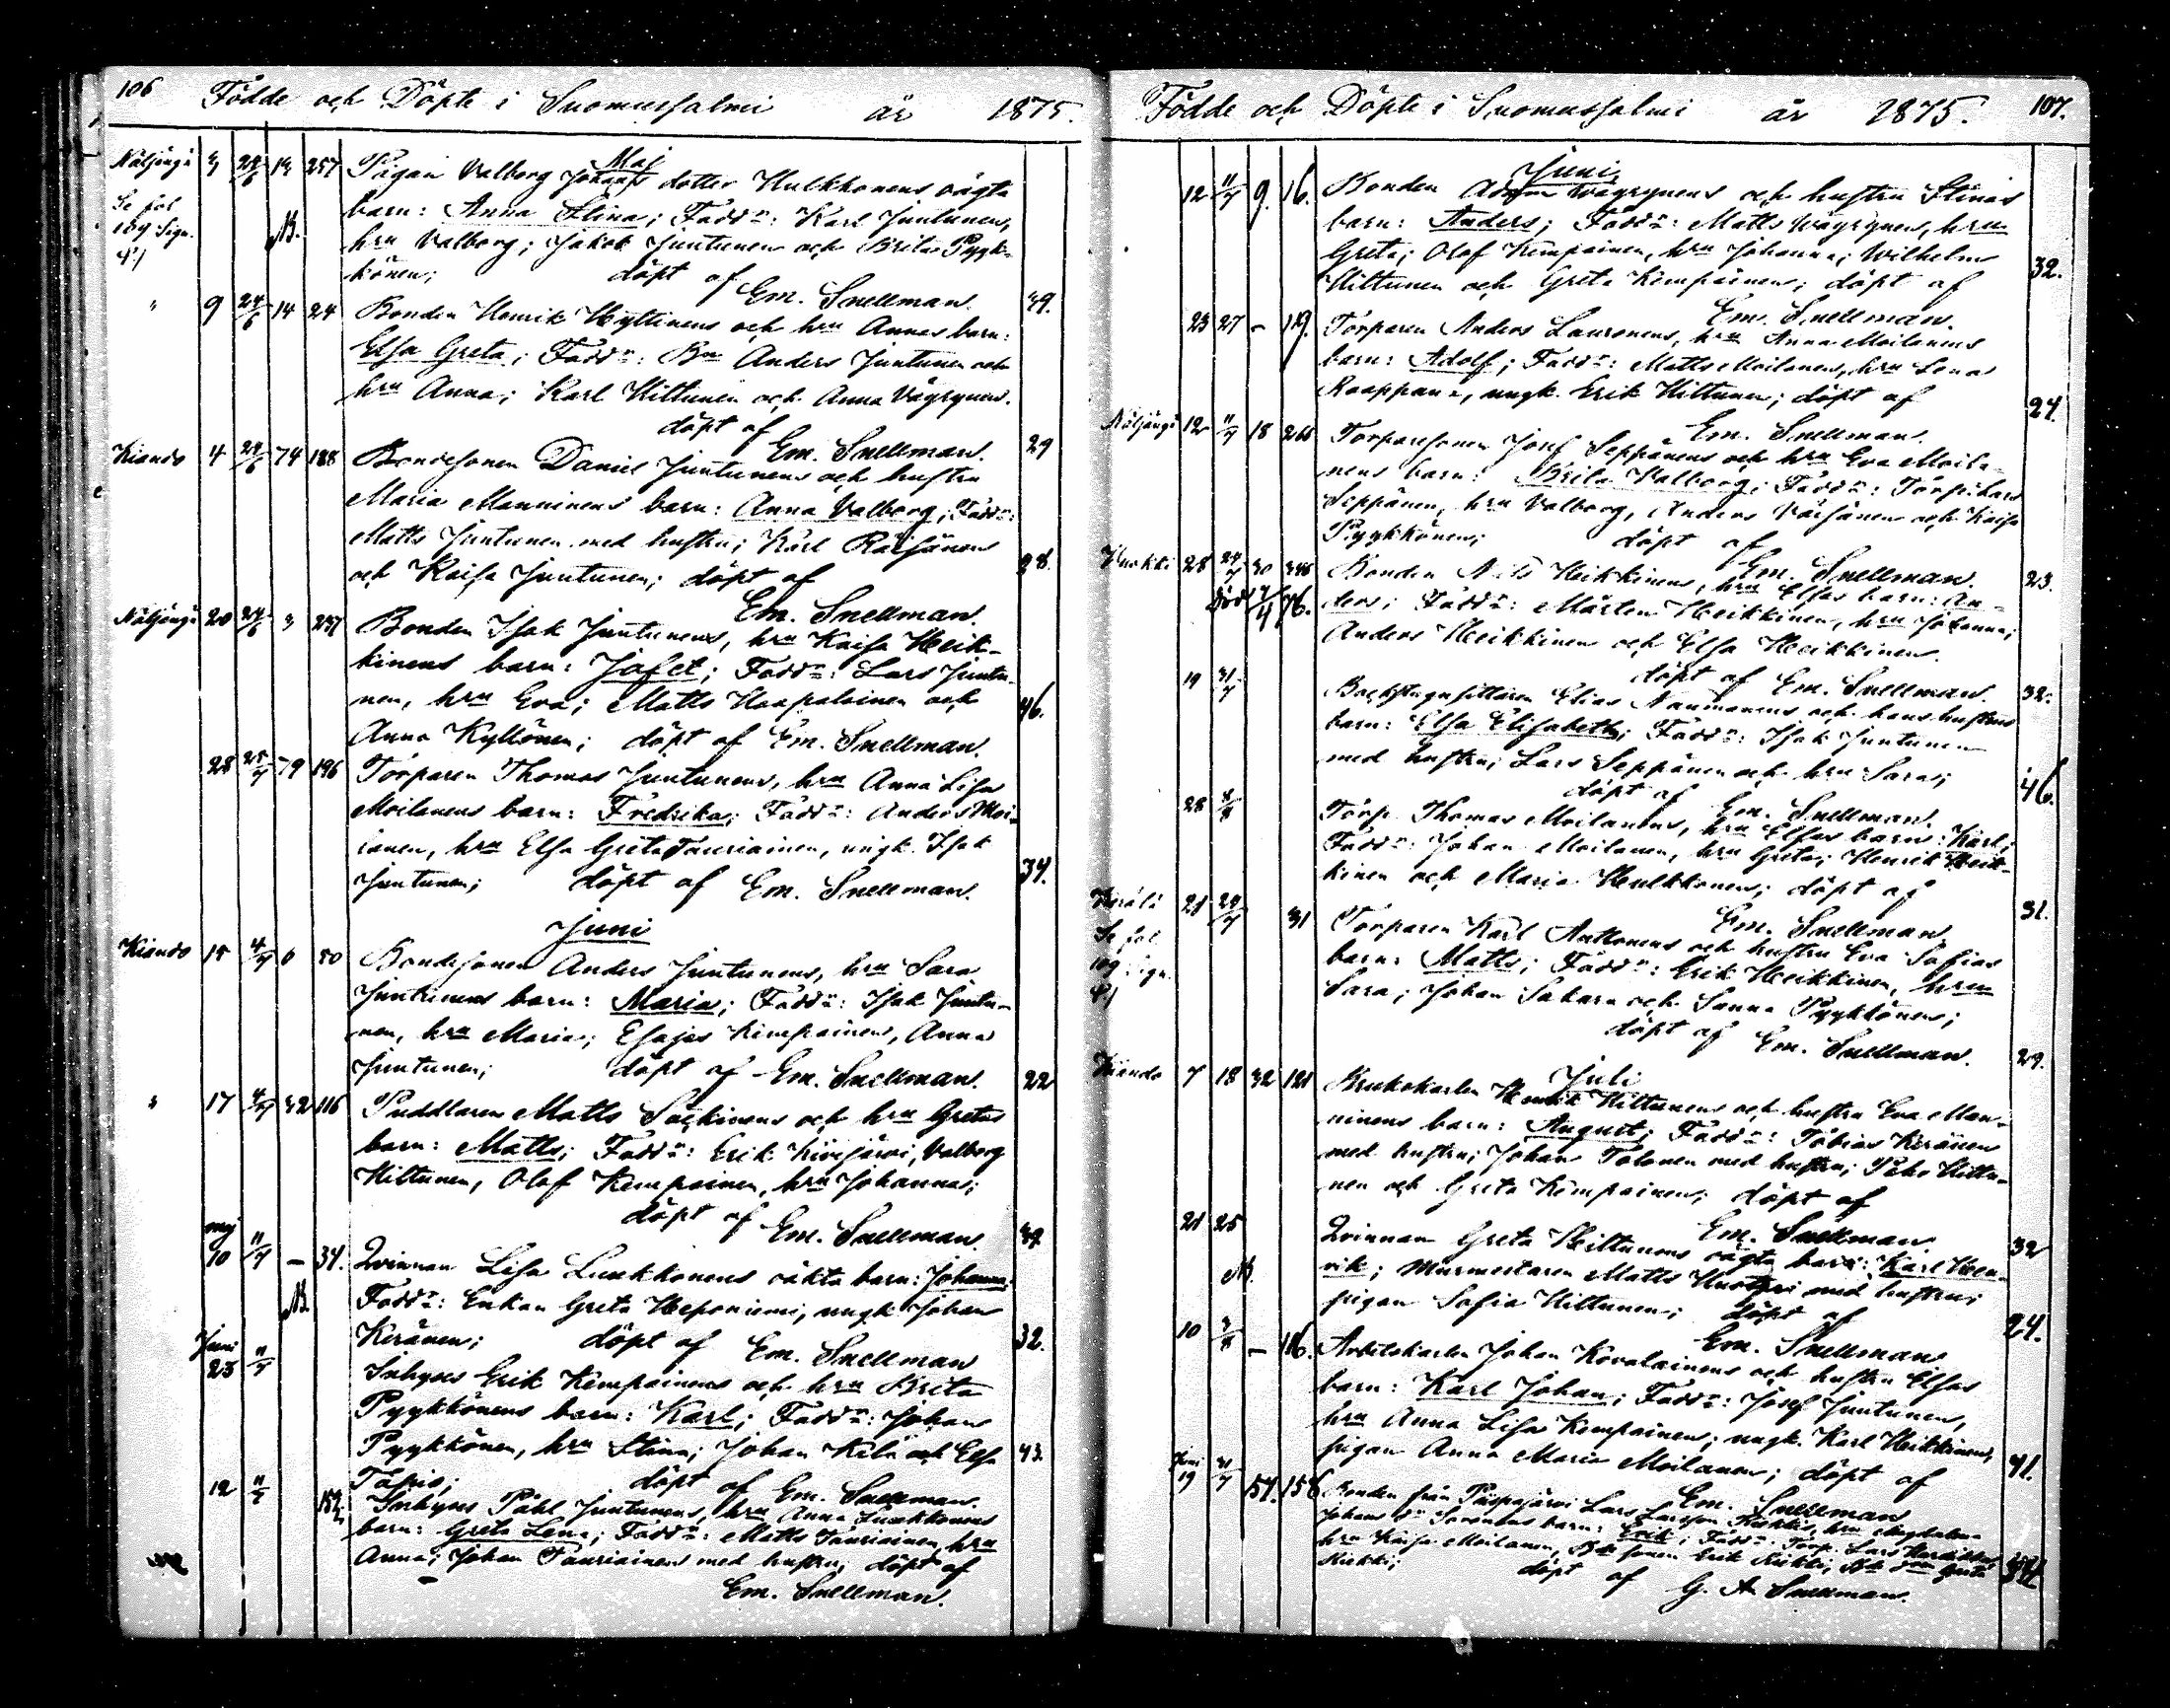 106 Födde och Döpte i Suomussalmi år 1875.
Maj
Näljängi 3 24/6 14 257 Pigan Valborg Johans dotter Hulkkonens oägta
Se fol barn: Anna Stina; Fadd: Karl Juntunen,
109 Sign. NB. hru Valborg; Jakob Juntunen och Brita Pyyk-
4) könen; döpt af
Em. Snellman. 39.
" 9 24/6 14 24 Bonden Henrik Hyttinens och hru Annas barn:
Elsa Greta; Fadd: Bn Anders Juntunen och
hru Anna; Karl Hiltunen och Anna Väyrynen.
döpt af
Em. Snellman. 29
Kianda 4 24/6 74 188 Bondesonen Daniel Juntunens och hustru
Maria Manninens barn: Anna Valborg; Fadd:
Matts Juntunen med hustru; Karl Räisänen
och Kaisa Juntunen; döpt af 28.
Em. Snellman.
Näljängi 20 24/6 3 237 Bonden Isak Juntunens, hru Kaisa Heik-
kinens barn: Jafet; Fadd: Lars Juntu-
nen, hru Eva; Matts Haapalainen och 46.
Anna Kyllönen; döpt af Em. Snellman.
28 25/7 79 196 Torparen Thomas Juntunens, hru Anna Lisa
Moilanens barn: Fredrika; Fadd: Anders Moi-
lanen, hru Elsa Greta Tauriainen, ungk. Isak
Juntunen; döpt af Em. Snellman. 34.
Juni
Kianda 15 4/7 6 50 Bondesonen Anders Juntunens, hru Sara
Juntunens barn: Maria; Fadd: Isak Juntu-
nen, hru Maria; Esajas Kimpainen, Anna
Juntunen; döpt af Em. Snellman. 22
" 17 4/7 32 116 Puddlaren Matts Säckinens och hru Gretas
barn: Matts; Fadd: Erik Kivijärvi, Valborg
Hiltunen, Olof Kempainen, hru Johanna;
döpt af
Em. Snellman. 39.
maj
10 11/7 – 34. Qvinnan Lisa Luukkonens oäkta barn: Johanna;
NB. Fadd: Enkan Greta Heponiemi, ungk Johan
Keränen; döpt af Em. Snellman 32.
Juni
23 11/7 Inhyses Erik Kempainens och hru Brita
Pyykkönens barn: Karl; Fadd: Johan
Pyykkönen, hru Stina; Johan Kela och Elsa 43.
Tapio; döpt af Em. Snellman.
12 11/7 152. Inhyses Påhl Juntunens, hru Anna Luukkonens
barn: Greta Lena; Fadd: Matts Tauriainen, hru
Anna; Johan Tauriainen med hustru; döpt af
Em. Snellman.
Födde och Döpte i Suomussalmi år 1875. 107.
Juni
12 11/7 9. 16. Bonden Adam Wäyrynens och hustru Stinas
barn: Anders; Fadd: Matts Wäyrynen, hru
Greta; Olof Kempainen, hru Johanna; Wilhelm
Hiltunen och Greta Kempainen; döpt af 32.
Em. Snellman.
23 27 – 119. Torparen Anders Lauronens, hru Anna Moilanens
barn: Adolf; Fadd: Matts Moilanen, hru Lena
Raappana, ungk. Erik Hiltunen; döpt af 24.
Em. Snellman.
Näljängi 12 11/7 18 266 Torparesonen Josef Seppänens och hru Eva Moila-
nens barn: Brita Valborg; Fadd: Torp. Lars
Seppänen, hru Valborg, Anders Väisänen och Kaisa
Pyykkönen; döpt af
Em. Snellman. 23.
Ruokki 28 24/7 30 346 Bonden Nils Heikkinens, hru Elsas barn: An-
död 7/4 76. ders; Fadd: Mårten Heikkinen, hru Johanna;
Anders Heikkinen och Elsa Heikkinen.
döpt af Em. Snellman. 32.
19 31/7 Backstugusittaren Elias Naumanens och hans hustrus
barn: Elsa Elisabeth; Fadd: Isak Juntunen
med hustru; Lars Seppänen och hru Sara;
döpt af Em. Snellman. 46.
28 8/8 Torp. Thomas Moilanens, hru Elsas barn: Karl;
Fadd: Johan Moilanen, hru Greta; Henrik Heik-
kinen och Maria Hulkkonen; döpt af
Em. Snellman 31.
21 24/7 31 Torparen Karl Anttonens och hustru Eva Sofias
Se fol barn: Matts; Fadd: Erik Heikkinen, hru
109 Sign. Sara; Johan Sakara och Sanna Pyykkönen;
4) döpt af Em. Snellman. 29.
Juli
Kianda 7 18 32 121 Brukskarlen Henrik Hiltunens och hustru Eva Man-
ninens barn: August; Fadd: Tobias Keränen
med hustru; Johan Tolonen med hustru; Pehr Hiltu-
nen och Greta Kempainen; döpt af
Em. Snellman. 32
21 25 Qvinnan Greta Hiltunens oägta barn: Karl Hen-
NB. rik; Murmestaren Matts med hustru;
pigan Sofia Hiltunen; döpt af 24.
Em. Snellman
10 8/8 – 116. Arbetskarlen Johan Kovalainens och hustru Elsas
barn: Karl Johan; Fadd: Josef Juntunen,
hru Anna Lisa Kempainen; ungk. Karl Heikkinen,
pigan Anna Maria Moilanen; döpt af 41.
Em. Snellman
Juni
19 31/7 157. 158 Bonden från Pispajärvi Lars Larsson Kiekkis, hru Magdalena
Johans dr Sorvanens barn: Erik; Fadd: Torp. Lars
hru Kaisa Moilanen, Bde sonen Erik Kiekki, Bde Greta
Kiekki; döpt af G. A Snellman.